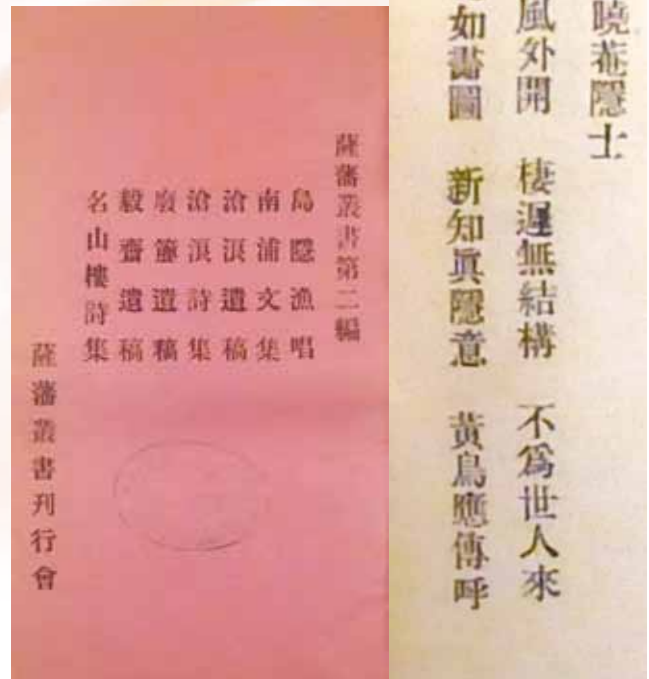 薩藩叢書第二編
島隱漁唱
南浦文集
滄浪遺稿
滄浪詩集
廢篴遺稿
毅齋遺稿
名山樓詩集
薩藩叢書刊行會
曉菴隱士
風外開 棲遲無結構 不爲世人來
如畫圖 新知眞隱意 黃鳥應傳呼